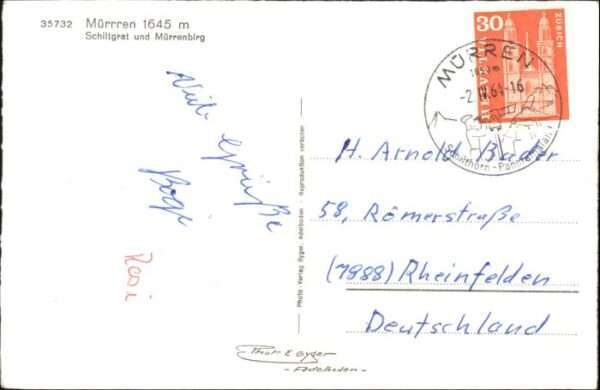 35732 Mürrren 1645 m
Schiltgrat und Mürrenbirg
Viele Grüße
Rosi
Photo-Verlag Gyger, Adelboden - Reproduction verboten
30
HELVETIA
ZÜRICH
MÜRREN
1650 m
-2.IV.64-16
Schilthorn-Panorama
H. Arnold Bader
58, Römerstraße
(7888) Rheinfelden
Deutschland
Phot. E. Gyger
- Adelboden -